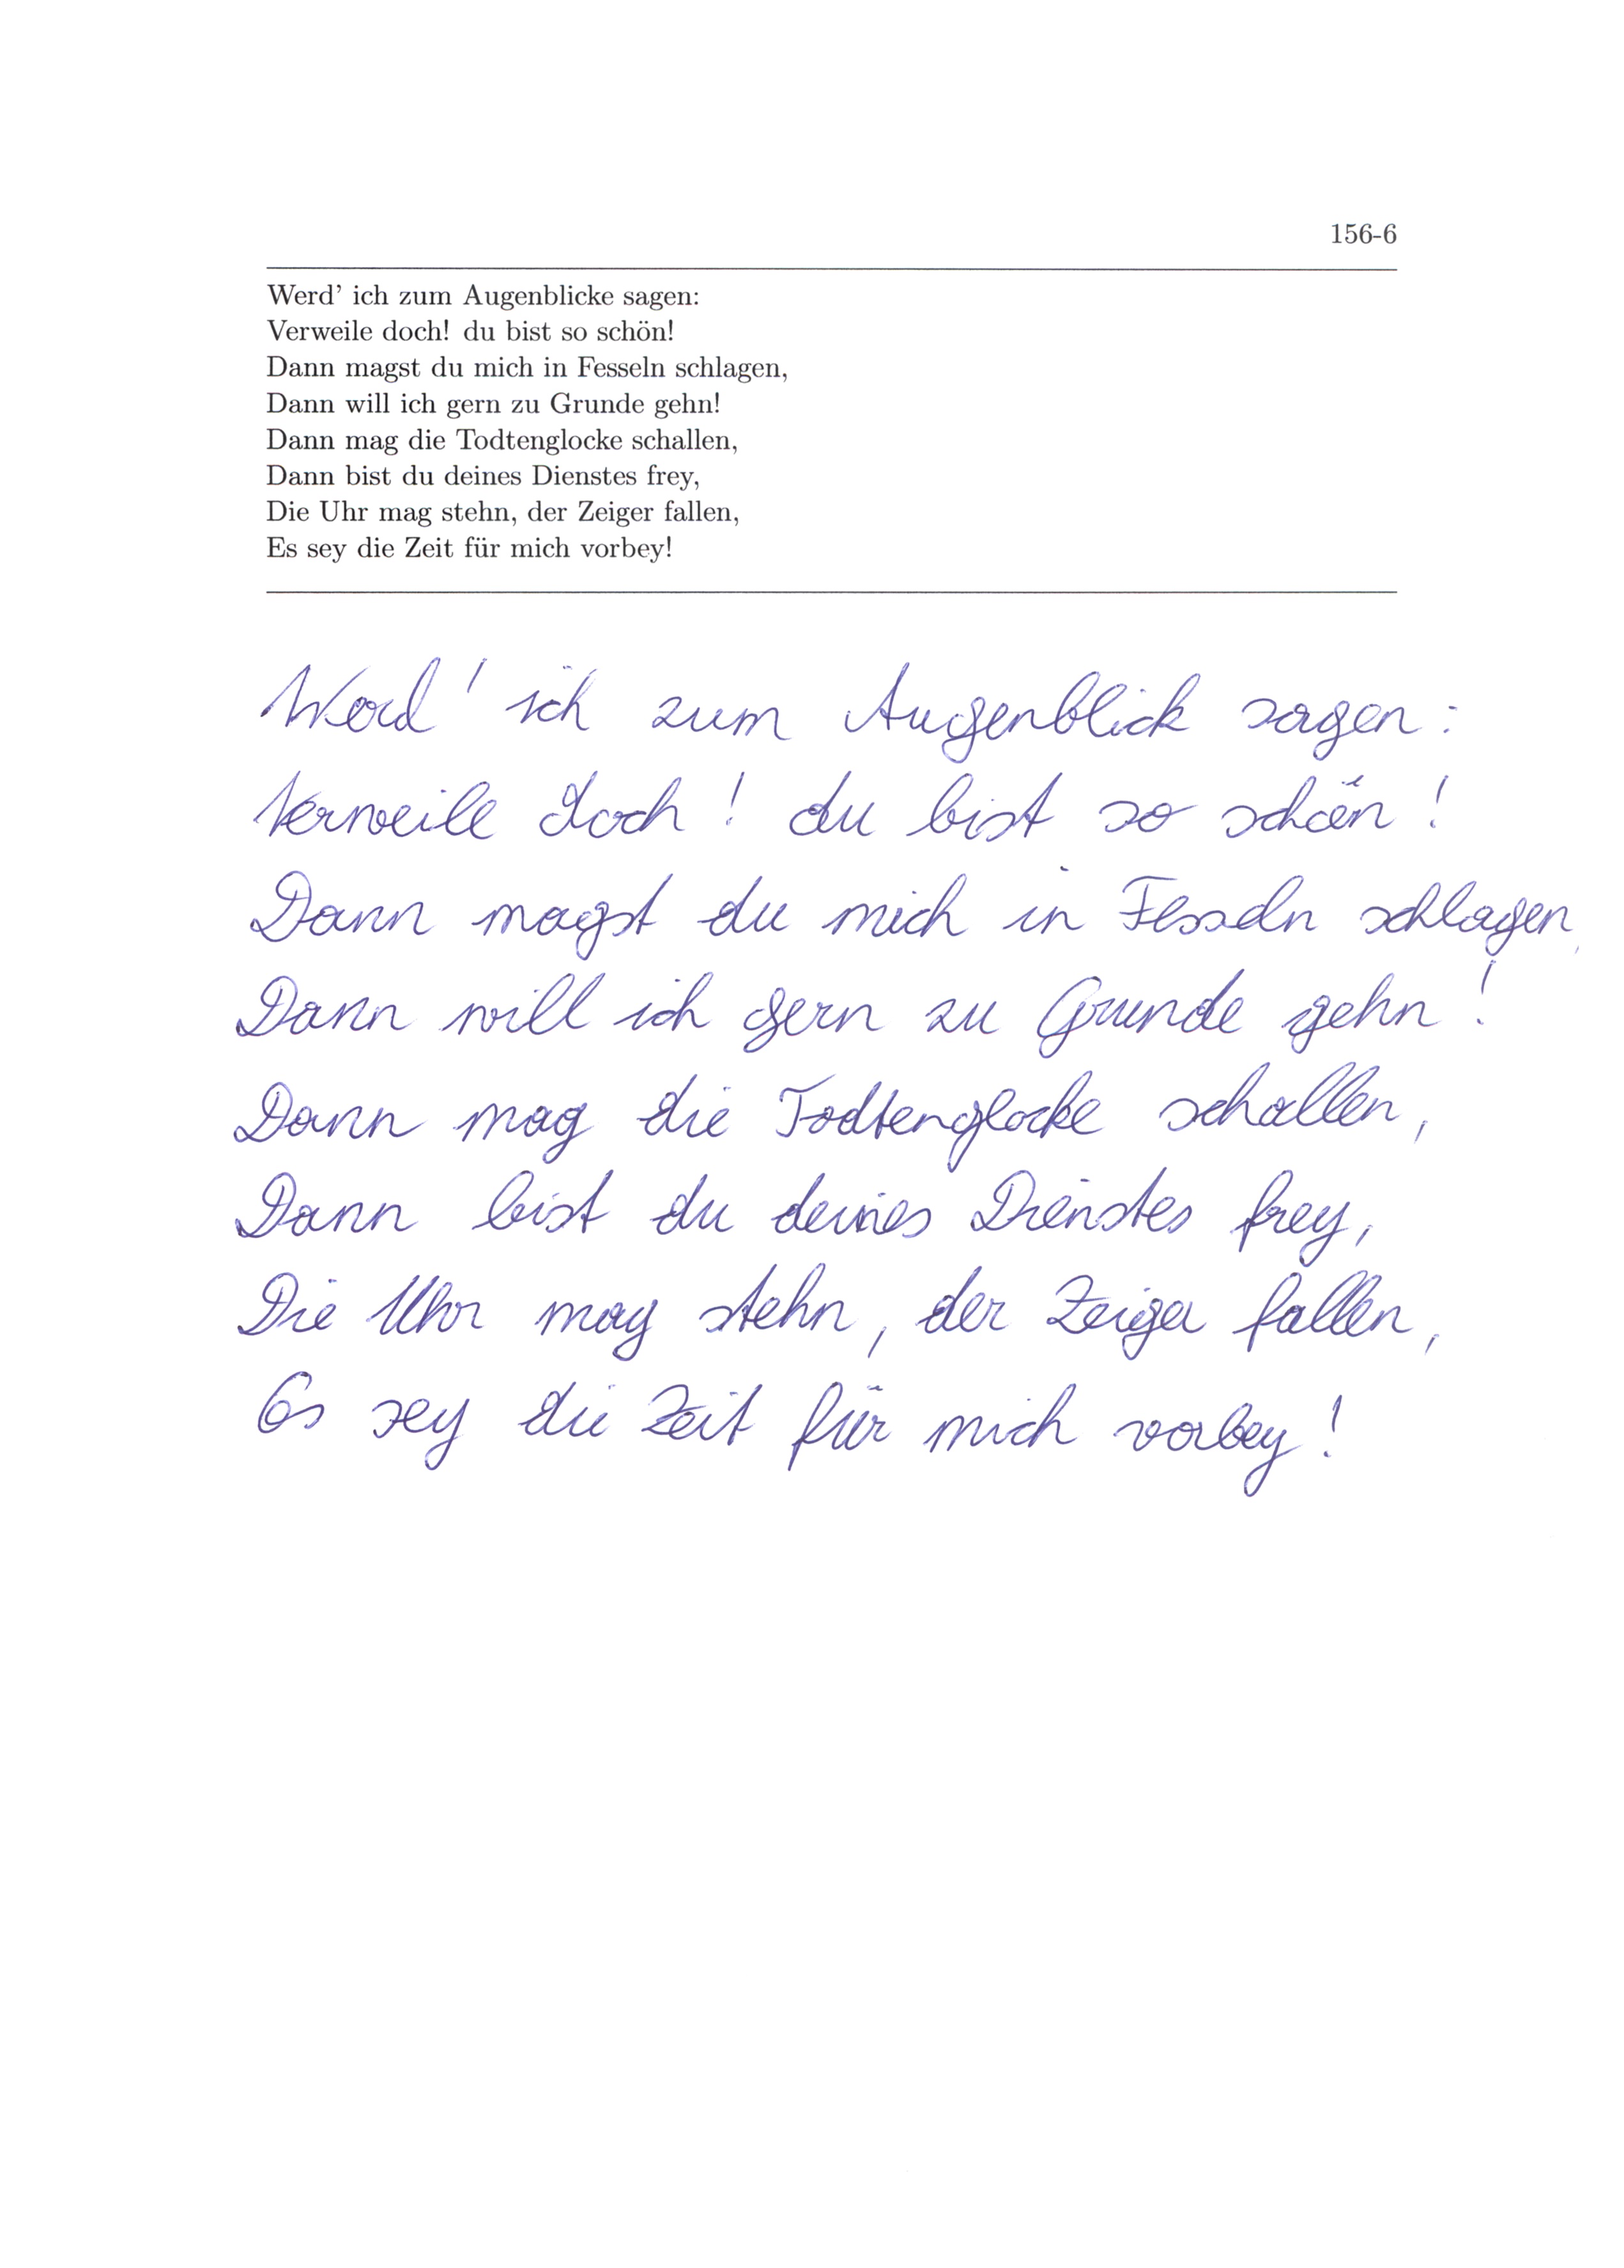 156-6
Werd’ ich zum Augenblicke sagen:
Verweile doch! du bist so schön!
Dann magst du mich in Fesseln schlagen,
Dann will ich gern zu Grunde gehn!
Dann mag die Todtenglocke schallen,
Dann bist du deines Dienstes frey,
Die Uhr mag stehn, der Zeiger fallen,
Es sey die Zeit für mich vorbey!
Werd' ich zum Augenblick sagen:
Verweile doch! du bist so schön!
Dann magst du mich in Fesseln schlagen,
Dann will ich gern zu Grunde gehn!
Dann mag die Todtenglocke schallen,
Dann bist du deines Dienstes frey,
Die Uhr mag stehn, der Zeiger fallen,
Es sey die Zeit für mich vorbey!